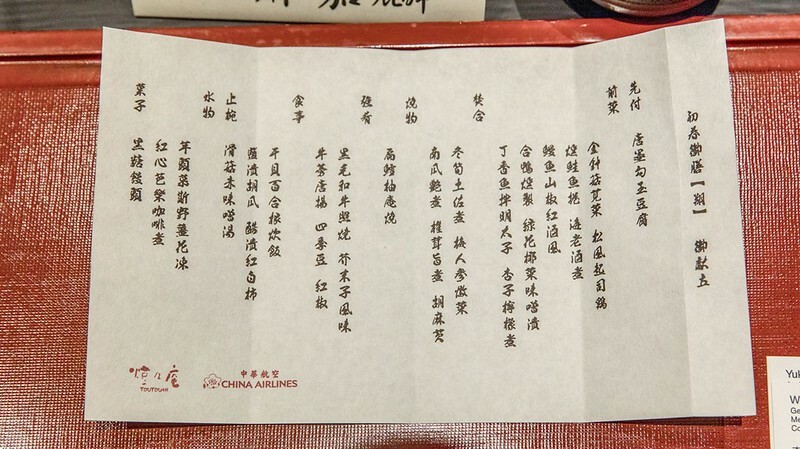 初春御膳【翔】 御献立
先付
唐墨勾玉豆腐
前菜
金針菇莧菜 松風起司鶏
燻鮭魚捲 海老酒煮
鰻魚山椒紅酒風
合鴨燻製 緑花椰菜味噌漬
丁香魚拌明太子 杏子檸檬煮
焚合
冬筍土佐煮 梅人参
南瓜艶煮 椎茸旨煮 胡麻芡
焼物
扁鱈柚庵焼
強肴
黒毛和牛照焼 芥末子風味
牛蒡唐揚 四季豆 紅椒
食事
干貝百合根炊飯
胡瓜 醋漬紅白柿
止椀
滑菇赤味噌湯
水物
芋頭慕斯野薑花凍
紅心芭樂咖啡煮
菓子
黒糖饅頭
燈々庵
TOUTOUAN
中華航空
CHINA AIRLINES
Yuk
W
Ge
Me
Co